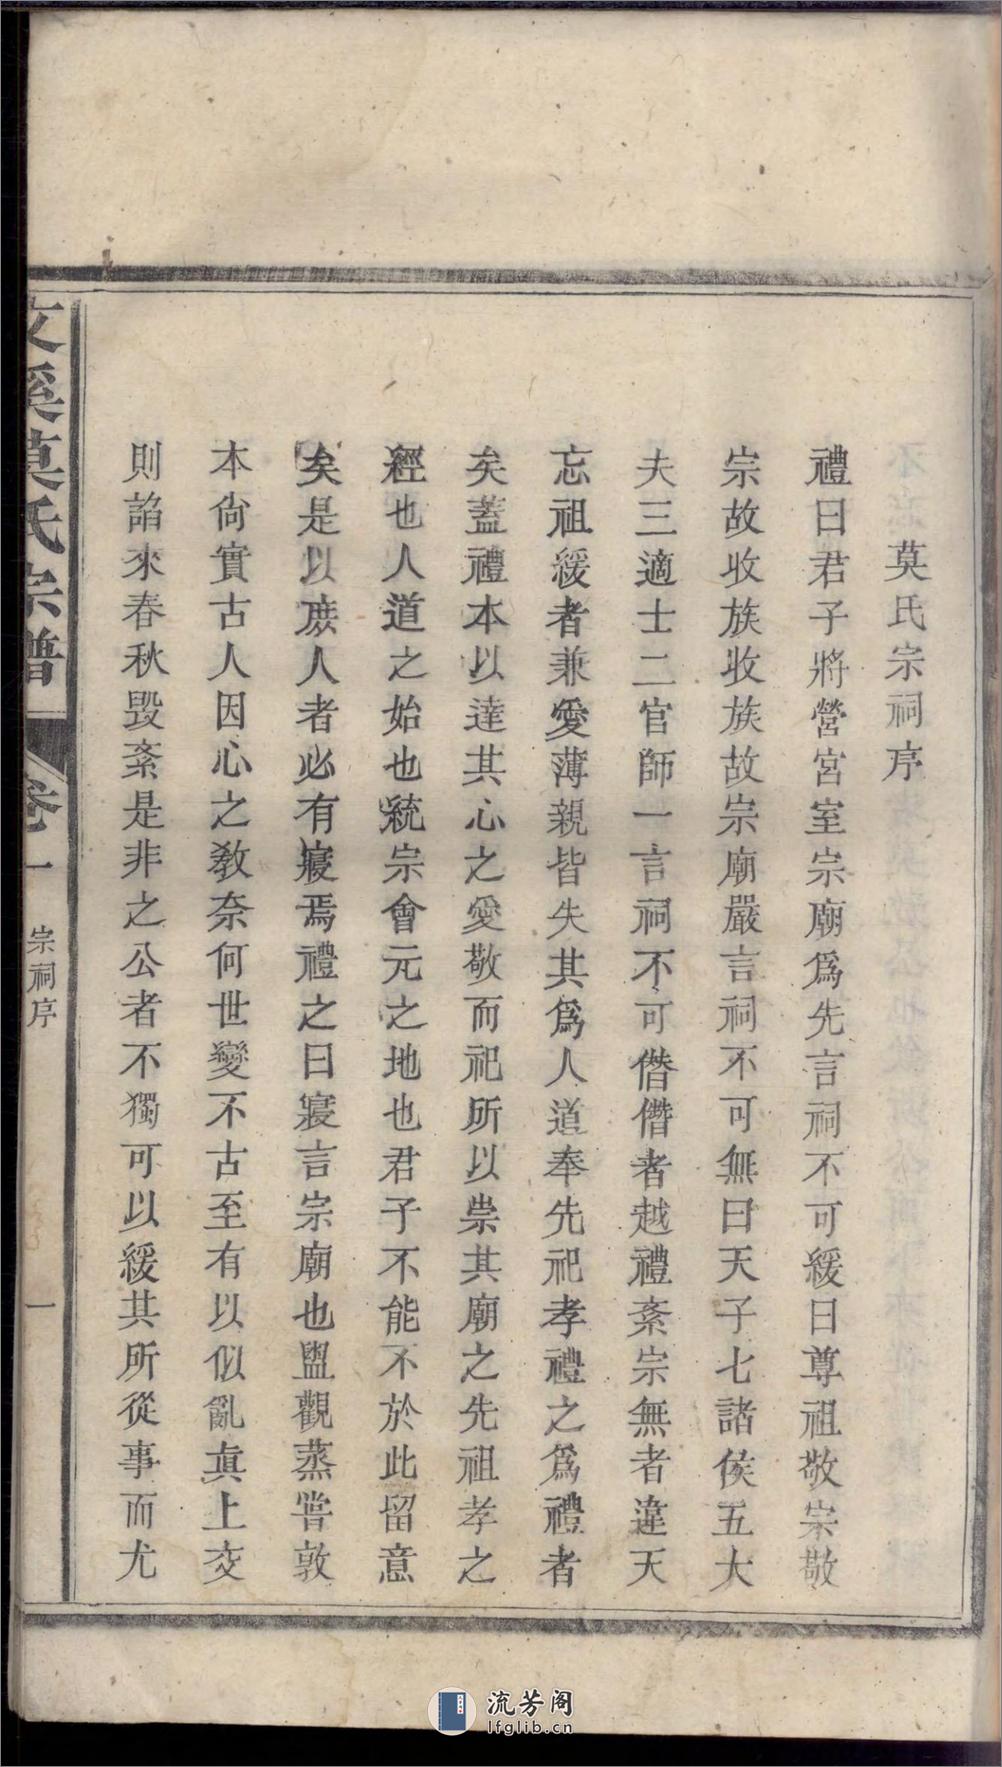 莫氏宗祠序
禮曰君子將營宮室宗廟爲先言祠不可緩曰尊祖敬宗敬
宗故收族收族故宗廟嚴言祠不可無曰天子七諸侯五大
夫三適士二官師一言祠不可僭僭者越禮紊宗無者違天
忘祖緩者兼愛薄親皆失其爲人道奉先祀孝禮之爲禮者
矣蓋禮本以達其心之愛敬而祀所以祟其廟之先祖孝之
經也人道之始也統宗會元之地也君子不能不於此留意
矣是以庶人者必有寢焉禮之曰寢言宗廟也盥觀蒸嘗敦
本尙實古人因心之教奈何世變不古至有以似亂眞上交
則諂來春秋毀紊是非之公者不獨可以緩其所從事而尤
文溪莫氏宗譜
卷一
宗祠序
一
流芳阁
lfglib.cn